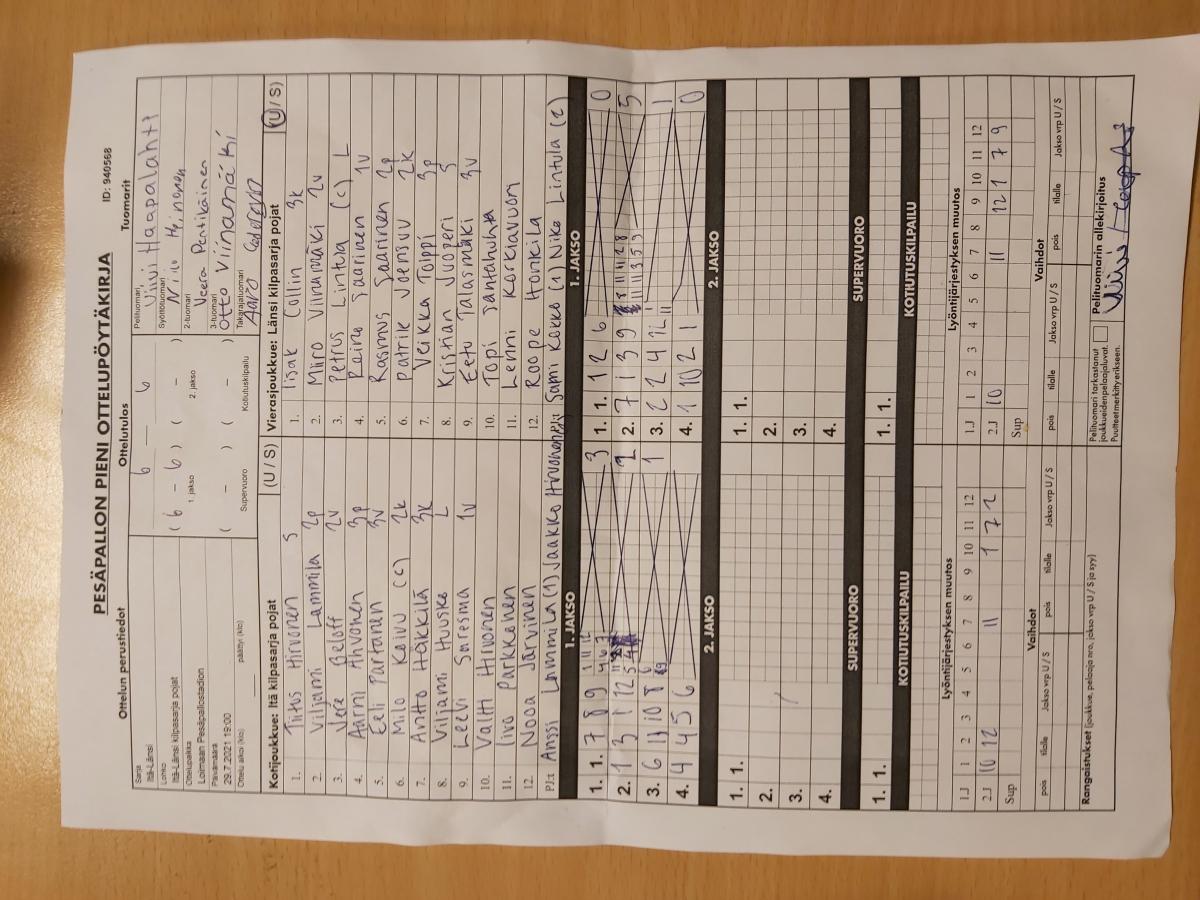 PESÄPALLON PIENI OTTELUPÖYTÄKIRJA
ID: 940568
Ottelun perustiedot
Sarja
Itä-Länsi
Lohko
Itä-Länsi kilpasarja pojat
Ottelupaikka
Loimaan Pesäpallostadion
Päivämäärä
29.7.2021 19:00
Ottelu alkoi (klo) päättyi (klo)
Ottelutulos
6 — 6
( 6 - 6 ) ( - )
1. jakso 2. jakso
( - ) ( - )
Supervuoro Kotiutuskilpailu
Tuomarit
Pelituomari
Viivi Haapalahti
Syöttötuomari
2-tuomari
Veera Pentikäinen
3-tuomari
Otto Viinamäki
Takarajatuomari
Aaro
Kotijoukkue: Itä kilpasarja pojat (U / S)
1. Tiitus Hirvonen 5
2. Viljami Lammila 2p
3. Vere Beloff 2v
4. Aarni Ahvonen 3p
5. Eeli Partanen 3v
6. Milo Koivu (c) 2k
7. Antto Häkkilä 3k
8. Viljami Huuske L
9. Leevi Suresma 1v
10. Valtti Hirvonen
11. Iivo Parkkinen
12. Nooa Järvinen
PJ: Anssi Lammila (1) Jaakko Hirvonen
Vierasjoukkue: Länsi kilpasarja pojat (U / S)
1. Iisak Collin 3k
2. Miro Viinamäki 2v
3. Petrus Lintula (c) L
4. Reino Saarinen 1v
5. Rasmus Saarinen 2p
6. Patrik Joensuu 2k
7. Veikka Tolppi 3p
8. Kristian Vuoperi 5
9. Eetu Talasmäki 3v
10. Topi Santahuhta
11. Lenni Korkiavuori
12. Roope Honkila
PJ: Sami Kokko (1) Niko Lintula (2)
1. JAKSO
1. 1. 7 8 9 3
2. 1 3 1 12 2
3. 6 11 10 8 1
4. 4 4 5 6
1. JAKSO
1. 1. 1 12 6 0
2. 7 1 3 9 5
3. 2 2 4 12 1
4. 1 10 2 1 0
2. JAKSO
1. 1.
2.
3.
4.
2. JAKSO
1. 1.
2.
3.
4.
SUPERVUORO
1. 1.
SUPERVUORO
1. 1.
KOTIUTUSKILPAILU
KOTIUTUSKILPAILU
Lyöntijärjestyksen muutos
1.J 1 2 3 4 5 6 7 8 9 10 11 12
2.J 10 12 11 1 7 2
Sup
Lyöntijärjestyksen muutos
1.J 1 2 3 4 5 6 7 8 9 10 11 12
2.J 10 11 12 1 7 9
Sup
Vaihdot
pois tilalle Jakso vrp U / S pois tilalle Jakso vrp U / S
Vaihdot
pois tilalle Jakso vrp U / S pois tilalle Jakso vrp U / S
Rangaistukset (joukkue, pelaaja nro, jakso vrp U / S ja syy)
Pelituomari tarkastanut
joukkueidenpelaajaluvat.
Puutteetmerkittyerikseen.
Pelituomarin allekirjoitus